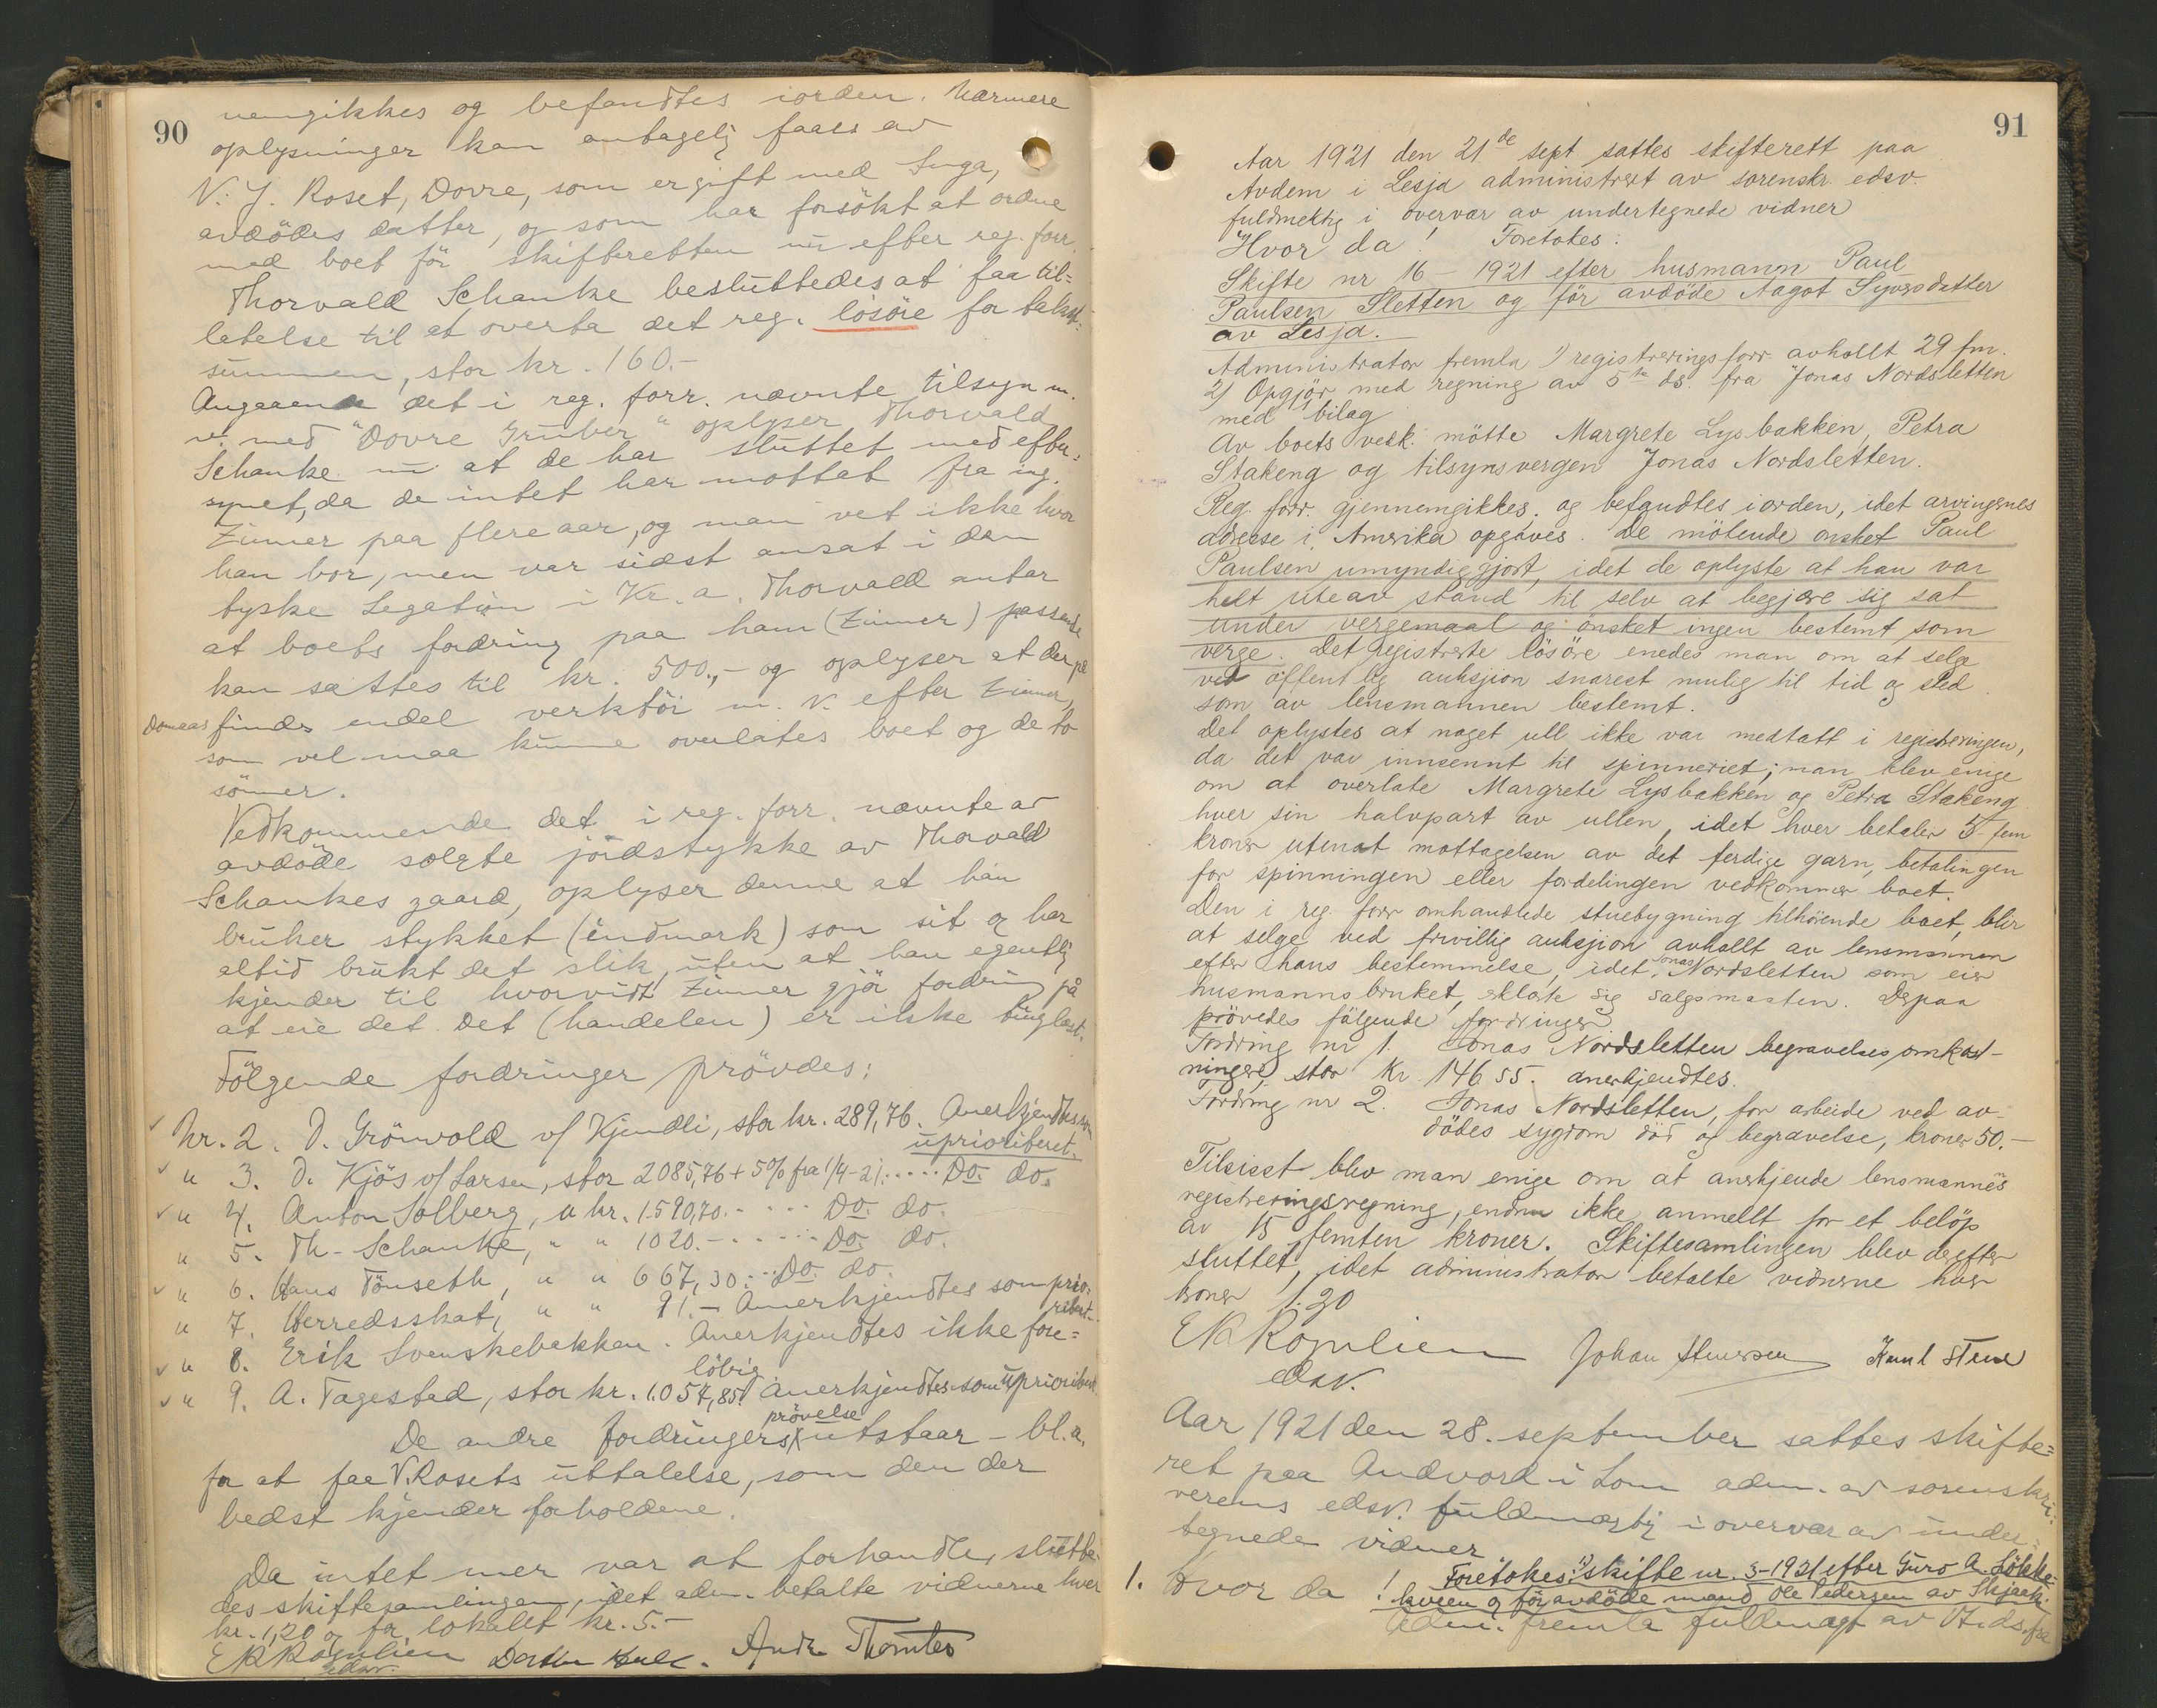 90
nemgikkes og befandtes iorden. Nærmere
oplysninger kan antagelig faaes av
N. J. Roset, Dovre, som er gift med Inga,
avdödes datter, og som har forsökt at ordne
med boet för skifteretten nu efter reg. forr.
Thorvald Schanke besluttedes at faa til=
latelse til at overta det reg. lösöre for takst=
summen, stor kr. 160.-
Angaaende det i reg. forr. nævnte tilsyn m.
v. med "Dovre Gruber" oplyser Thorvald
Schanke nu at de har sluttet med efter=
synet, da de intet har mottat fra ing.
Zimmer paa flere aar, og man vet ikke hvor
han bor, men var sidst ansat i den
tyske Legation i Kr.a. Thorvald antar
at boets fordring paa ham (Zimmer) passende
kan sættes til kr. 500,- og oplyser at der på
Domaas findes endel verktöi m. v. efter Zimmer,
som vel maa kunne overlates boet og de to
sönner.
Vedkommende det i reg. forr. nævnte av
avdöde solgte jordstykke av Thorvald
Schankes gaard, oplyser denne at han
bruker stykket (indmark) som sit og har
altid brukt det slik, uten at han egentlig
kjender til hvorvidt Zimmer gjör fordring på
at eie det. Det (handelen) er ikke tinglæst.
Fölgende fordringer prövdes:
Nr. 2. O. Grönvold v/ Kjendli, stor kr. 289,76. Anerkjendtes som
uprioriteret.
" 3. O. Kjös v/ Larsen, stor 2085,76 + 5% fra 1/4-21..... Do. do.
" 4. Anton Solberg, " kr. 1590,70.- .... Do. do.
" 5. Th. Schanke, " " 1020.- ..... Do. do.
" 6. Hans Tönseth, " " 667,30.- .. Do. do.
" 7. Herredsskat, " " 91.- Anerkjendtes som prio=
ritert.
" 8. Erik Svenskebakken. Anerkjendtes ikke fore=
löbig
" 9. A. Tagestad, stor kr. 1.057,85. Anerkjendtes som uprioritert.
prövelse
De andre fordringers utstaar - bl.a.
for at faa V. Rosets uttalelse, som den der
bedst kjender forholdene.
Da intet mer var at forhandle, slutte=
des skiftesamlingen, idet adm. betalte vidnerne hver
kr. 1,20 og for lokalet kr. 5.-
EKRognlien
edsv.
Andr. Thomter
91
Aar 1921 den 21de sept sattes skifterett paa
Avdem i Lesja administrert av sorenskr. edsv.
fuldmektig i overvær av undertegnede vidner
Hvor da! Foretokes:
Skifte nr 16 - 1921 efter husmann Paul
Paulsen Sletten og för avdöde Aagot Syversdatter
av Lesja.
Administrator fremla 1) registreringsforr. avhollt 29 f.m.
2) Opgjör med regning av 5te ds. fra Jonas Nordsletten
med 1 bilag
Av boets vedk. mötte Margrete Lysbakken, Petra
Stakeng og tilsynsvergen Jonas Nordsletten.
Reg. forr. gjennemgikkes og befandtes iorden, idet arvingenes
adresse i Amerika opgaves. De mötende önsket Paul
Paulsen umyndiggjort, idet de oplyste at han var
helt uteav stand til selv at begjære sig sat
under vergemaal og önsket ingen bestemt som
verge. Det registrerte lösöre enedes man om at selge
ved offentlig auksjion snarest mulig til tid og sted
som av lensmannen bestemt.
Det oplystes at noget ull ikke var medtatt i registreringen,
da det var innsennt til spinneriet; man blev enige
om at overlate Margrete Lysbakken og Petra Stakeng
hver sin halvpart av ullen, idet hver betaler 5 - fem
kroner utenat mottagelsen av det ferdige garn, betalingen
for spinningen eller fordelingen vedkommer boet.
Den i reg. forr omhandlede stuebygning tilhörende boet, blir
at selge ved frivillig auksjion avhollt av lensmannen
efter hans bestemmelse, idet Jonas Nordsletten som eier
husmannsbruket, erklærte sig salgsmaaten. Derpaa
prövedes fölgende fordringer
Fordring nr 1. Jonas Nordsletten begravelsesomkost-
ninger, stor Kr. 146 55. anerkjendtes.
Fordring nr 2. Jonas Nordsletten, for arbeide ved av-
dödes sygdom död og begravelse, kroner 50.-
Tilsisst blev man enige om at anerkjende lensmannens
registreringsregning, endnu ikke anmellt for et belöp
av 15 femten kroner. Skiftesamlingen blev derefter
sluttet, idet administrator betalte vidnerne hver
kroner 1.20
EKRognlien
edsv.
Johan
Aar 1921 den 28. september sattes skifte=
ret paa Andvord i Lom adm. av sorenskri=
verens edsv. fuldmægtig i overvær av under=
tegnede vidner
1. Hvor da! Foretokes: 1) skifte nr. 3-1921 efter Guro A. Lökke=
kveen og för avdöde mand Ole Pedersen av Skjaak.
Adm. fremla fuldmagt av 17. ds. fra